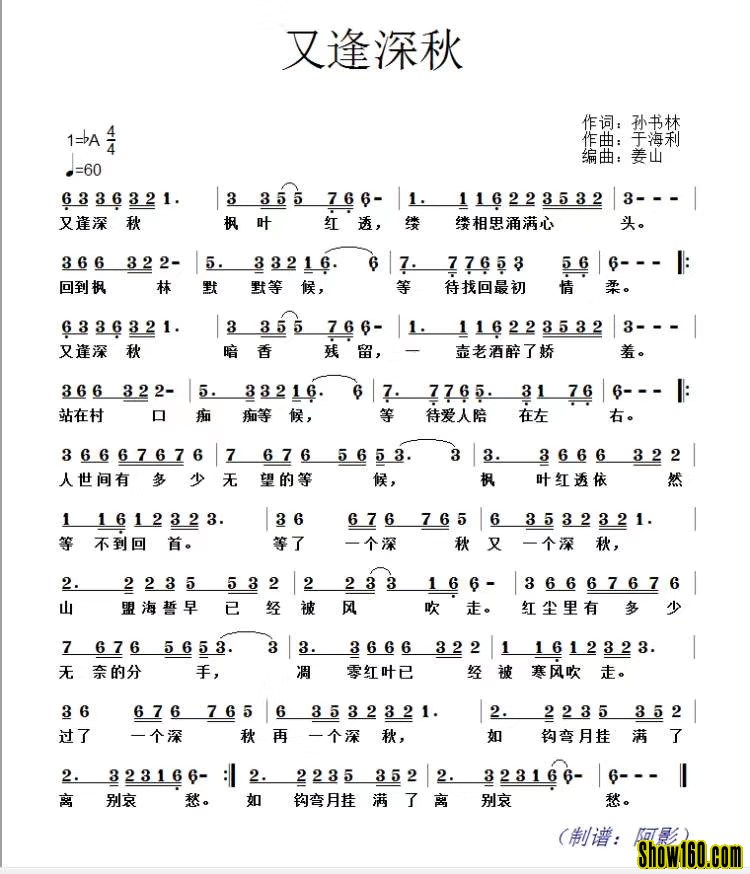 又逢深秋
作词：孙书林
1=♭A 4/4
作曲：于海利
♩=60
编曲：姜山
6 3 3 6 3 2 1. | 3 3 5 5 7 6 6- | 1. 1 1 6 2 2 3 5 3 2 | 3 - - - |
又逢深 秋 枫 叶 红 透， 缕 缕相思涌满心 头。
3 6 6 3 2 2 2- | 5. 3 3 2 1 6. 6 | 7. 7 7 6 5 3 5 6 | 6 - - - ‖:
回到枫 林 默 默等 候， 等 待找回最初 情 柔。
6 3 3 6 3 2 1. | 3 3 5 5 7 6 6- | 1. 1 1 6 2 2 3 5 3 2 | 3 - - - |
又逢深 秋 暗 香 残 留， 一 壶老酒醉了娇 羞。
3 6 6 3 2 2 2- | 5. 3 3 2 1 6. 6 | 7. 7 7 6 5. 3 1 7 6 | 6 - - - ‖:
站在村 口 痴 痴等 候， 等 待爱人陪 在左 右。
3 6 6 6 6 7 6 7 6 | 7 6 7 6 5 6 5 3. 3 | 3. 3 6 6 6 3 2 2 |
人世间有 多 少 无 望的等 候， 枫 叶红透依 然
1 1 6 1 2 3 2 3. | 3 6 6 7 6 7 6 5 | 6 3 5 3 2 3 2 1. |
等 不到回 首。 等了 一个深 秋 又 一个深 秋，
2. 2 2 3 5 5 3 2 | 1 2 2 3 3 1 6 6- | 3 6 6 6 6 7 6 7 6 |
山 盟海誓早 已 经 被 风 吹 走。 红尘里有 多 少
7 6 7 6 5 6 5 3. 3 | 3. 3 6 6 6 3 2 2 | 1 1 6 1 2 3 2 3. |
无 奈的分 手， 凋 零红叶已 经 被 寒风吹 走。
3 6 6 7 6 7 6 5 | 6 3 5 3 2 3 2 1. | 2. 2 2 3 5 3 5 5
过了 一个深 秋 再 一个深 秋， 如 钩弯月挂 满 了
2. 3 2 3 1 6 6- :‖ 2. 2 2 3 5 3 5 5 | 2. 3 2 3 1 6 6- | 6 - - - ‖
离 别哀 愁。 如 钩弯月挂 满 了 离 别哀 愁。
（制谱：阿影）
Show160.com